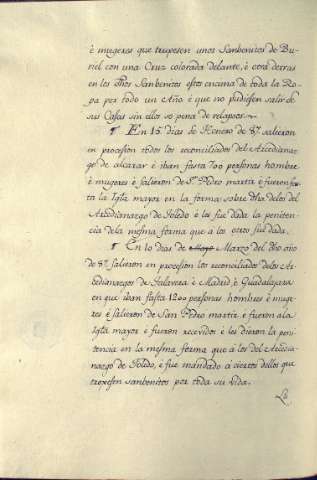 è mugeres que truxesen unos Sanbenitos de Bu-
riel con una Cruz colorada delante, è otra detras
en los dhos Sanbenitos estos encima de toda la Ro-
pa por todo un Año è que no pudiesen salir de
sus Casas sin ellos so pena de relapsos.
¶ En 15 dias de Henero de 87 salieron
en procesion todos los reconciliados del Arcedianaz-
go de alcaraz è iban fasta 700 personas hombres
è mugeres è salieron de Sn Pedro martir è fueron fas-
ta la Iglª mayor en la forma sobre dha delos del
Arcedianazgo de Toledo è les fue dada la peniten-
cia de la mesma forma que à los otros fue dada.
¶ En 10 dias de Mayo Marzo del dho año
de 87 salieron en procesion los reconciliados delos Ar-
cedianazgos de Talavera è Madrid è Guadalajara
en que iban fasta 1200 personas hombres è muge-
res è salieron de San Pedro martir è fueron ala
Iglª mayor è fueron recevidos è les dieron la peni-
tencia en la mesma forma que à los del Arcedia-
nazgo de Toledo, è fue mandado a ciertos dellos que
truxesen sanbenitos por toda su vida.